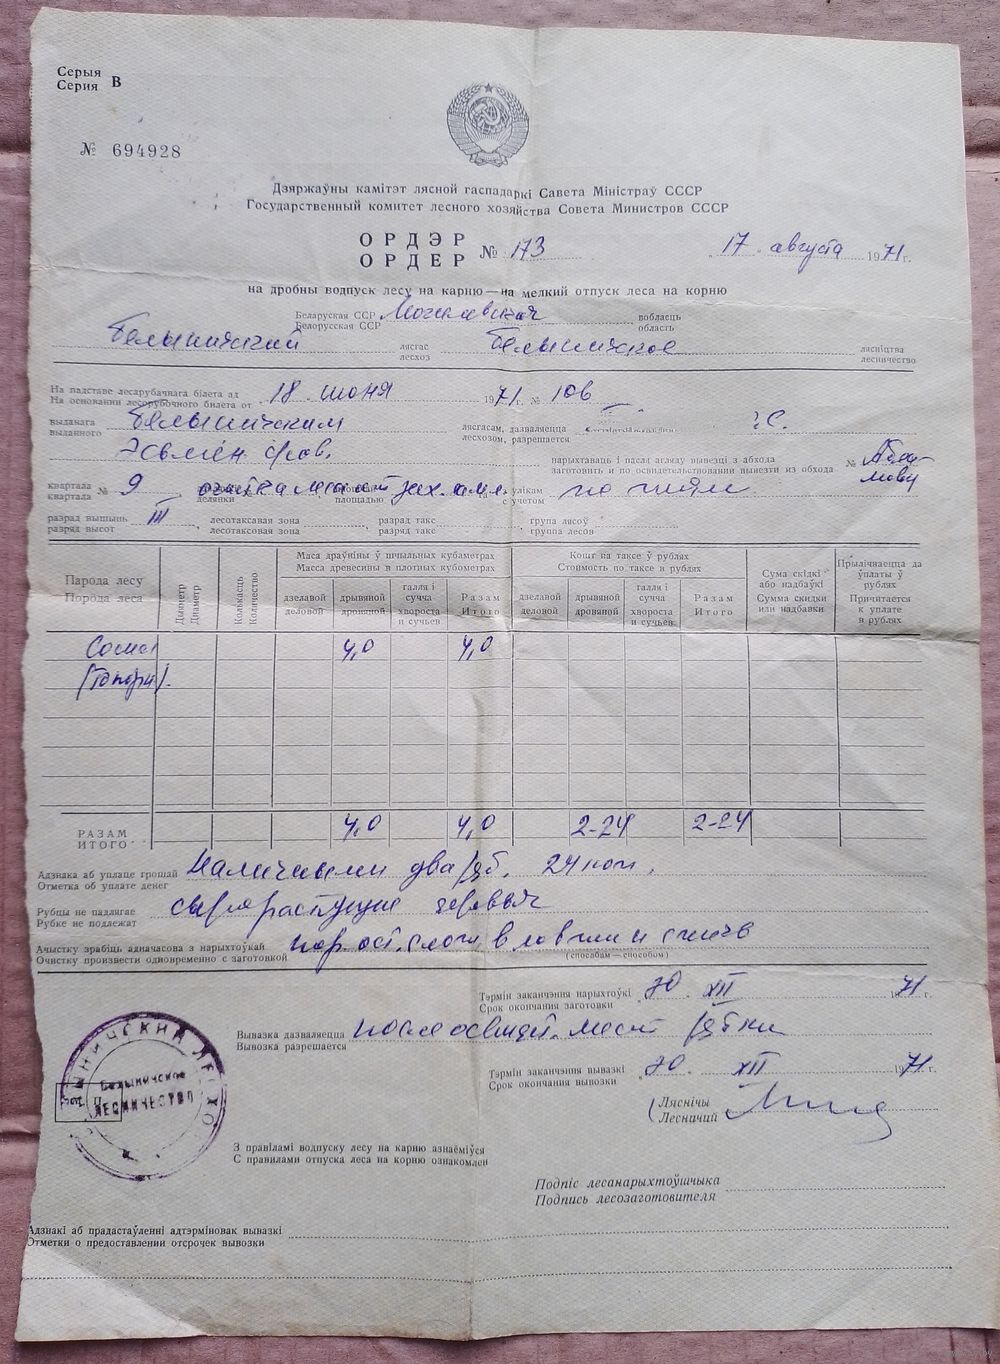 Серыя
Серия В
№ 694928
Дзяржаўны камітэт лясной гаспадаркі Савета Міністраў СССР
Государственный комитет лесного хозяйства Совета Министров СССР
ОРДЭР
ОРДЕР № 173
17 августа 1971 г.
на дробны водпуск лесу на карню — на мелкий отпуск леса на корню
Беларуская ССР Могилевская вобласць
Белорусская ССР область
Белыничский лясгас Белыничское лясніцтва
лесхоз лесничество
На падставе лесарубачнага білета ад
На основании лесорубочного билета от 18 июня 1971 г. № 106
выданага Белыничским лясгасам, дазваляецца
выданного лесхозом, разрешается
нарыхтаваць і пасля агляду вывезці з абхода
заготовить и по освидетельствовании вывезти из обхода №
квартала
квартала № 9 плошчаю з улікам
делянки площадью с учетом
разрад вышынь III , лесотаксавая зона , разрад такс , група лясоў
разряд высот лесотаксовая зона разряд такс группа лесов
Парода лесу
Порода леса
Дыяметр
Диаметр
Колькасць
Количество
Маса драўніны ў шчыльных кубаметрах
Масса древесины в плотных кубометрах
Кошт па таксе ў рублях
Стоимость по таксе в рублях
Сума скідкі або надбаўкі
Сумма скидки или надбавки
Прылічваецца да ўплаты ў рублях
Причитается к уплате в рублях
дзелавой
деловой
дрывяной
дровяной
галля і сучча
хвороста и сучьев
Разам
Итого
дзелавой
деловой
дрывяной
дровяной
галля і сучча
хвороста и сучьев
Разам
Итого
Сосна 4,0 4,0
РАЗАМ
ИТОГО 4,0 4,0 2-24 2-24
Адзнака аб уплаце грошай
Отметка об уплате денег Наличными два руб. 24 коп.
Рубцы не падлягае
Рубке не подлежат сырорастущие деревья
Ачыстку зрабіць адначасова з нарыхтоўкай
Очистку произвести одновременно с заготовкой
(способам — способом)
Тэрмін заканчэння нарыхтоўкі
Срок окончания заготовки 30 XII 1971 г.
Вывазка дазваляецца
Вывозка разрешается после освидет. мест рубки
Тэрмін заканчэння вывазкі
Срок окончания вывозки 30. XII 1971 г.
Ляснічы
Лесничий
Белыничское
ЛЕСНИЧЕСТВО
З правіламі водпуску лесу на карню азнаёміўся
С правилами отпуска леса на корню ознакомлен
Подпіс лесанарыхтоўшчыка
Подпись лесозаготовителя
Адзнакі аб прадастаўленні адтэрміновак вывазкі
Отметки о предоставлении отсрочек вывозки